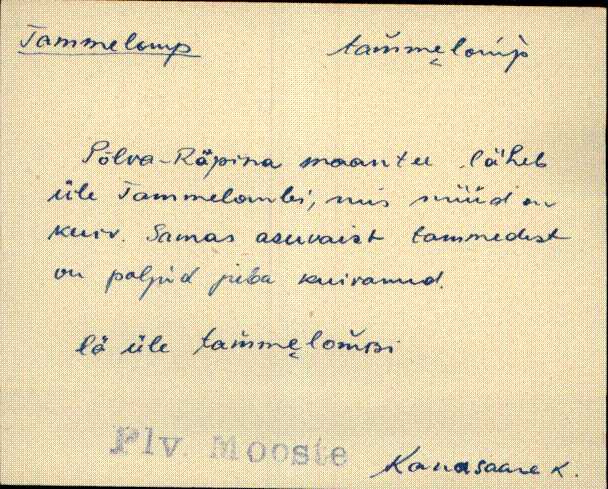 Tammelomp tam̆me̬lom̆p
Põlva-Räpina maantee läheb
üle Tammelombi, mis nüüd on
kuiv. Samas asuvaist tammedest
on paljud juba kuivanud.
lä üle tam̆me̬lom̆bi
Plv. Mooste
Kanasaare K.